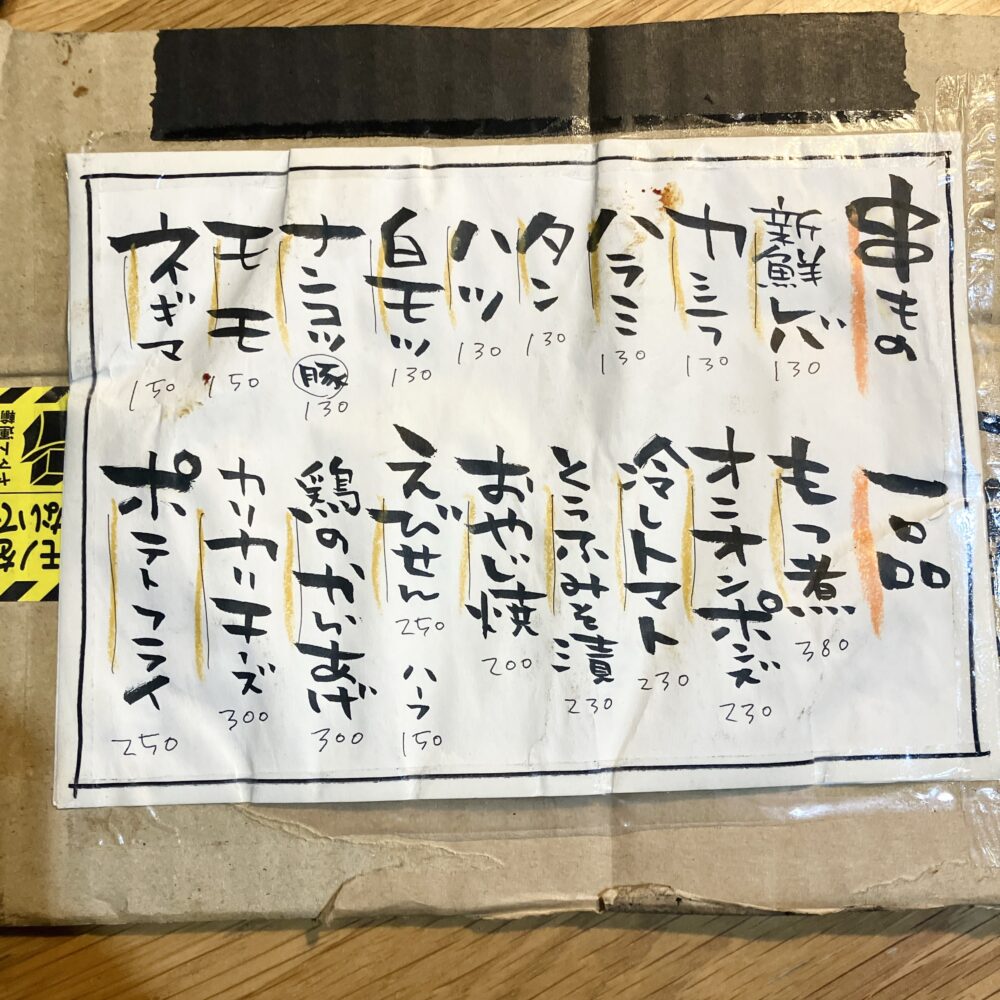 串もの
新鮮レバ
130
カシラ
130
ハラミ
130
タン
130
ハツ
130
白モツ
130
ナンコツ
豚
130
モモ
150
ネギマ
150
一品
もつ煮
380
オニオンポンズ
230
冷しトマト
230
とうふみそ漬
230
おやじ焼
200
えびせん
250
ハーフ
150
鶏のからあげ
300
カリカリチーズ
300
ポテトフライ
250
モノを
ないで